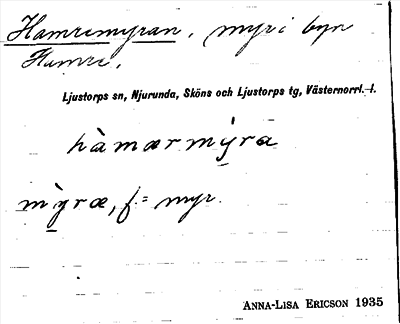 Hamremyran, myr i byn
Hamre.
Ljustorps sn, Njurunda, Sköns och Ljustorps tg, Västernorrl. l.
hàmærmy̱ra
mỳ̱ræ, f. = myr.
ANNA-LISA ERICSON 1935